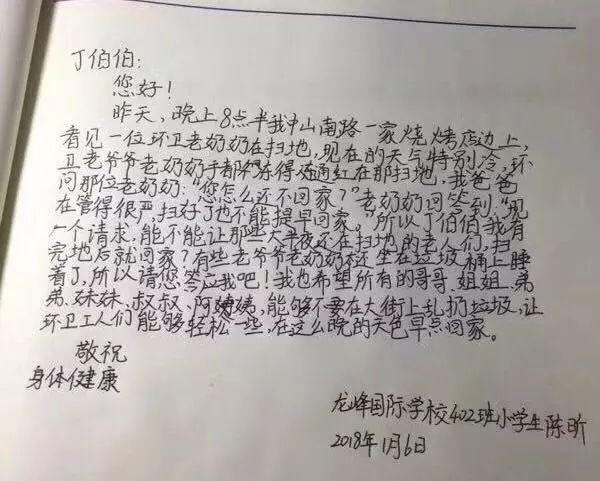 丁伯伯:
您好!
昨天,晚上8点半我中山南路一家烧烤店边上,
看见一位环卫老奶奶在扫地,现在的天气特别冷,环
卫老爷爷老奶奶手都冻得通红在那扫地,我爸爸
问那位老奶奶:“您怎么还不回家?”老奶奶回答到,“现
在管得很严,扫好了也不能提早回家。”所以丁伯伯我有
一个请求,能不能让那些大半夜还在扫地的老人们,扫
完地后就回家?有些老爷爷老奶奶坐在垃圾桶上睡
着了,所以请您答应我吧!我也希望所有的哥哥、姐姐、弟
弟、妹妹、叔叔、阿姨,能够不要在大街上乱扔垃圾,让
环卫工人们能够轻松一些,在这么晚的天色早点回家。
敬祝
身体健康
龙峰国际学校402班小学生陈昕
2018年1月6日